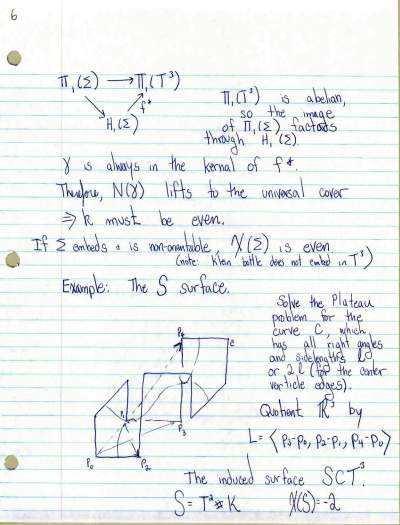 6
Π₁(Σ) → Π₁(T³)
H₁(Σ) f*
Π₁(T³) is abelian,
so the image
of Π₁(Σ) factors
through H₁(Σ)
γ is always in the kernal of f*.
Therefore, N(γ) lifts to the universal cover
⇒ k must be even.
If Σ embeds & is non-orientable, χ(Σ) is even.
(note: Klein bottle does not embed in T³)
Example: The S surface.
Solve the Plateau
problem for the
curve C, which
has all right angles
and sidelengths l
or 2l (for the center
verticle edges).
P₄ C
P₁ P₃
P₀ P₂
Quotient ℝ³ by
L = ⟨P₃-P₀, P₂-P₁, P₄-P₀⟩
The induced surface S⊂T³.
S = T² # K χ(S) = -2